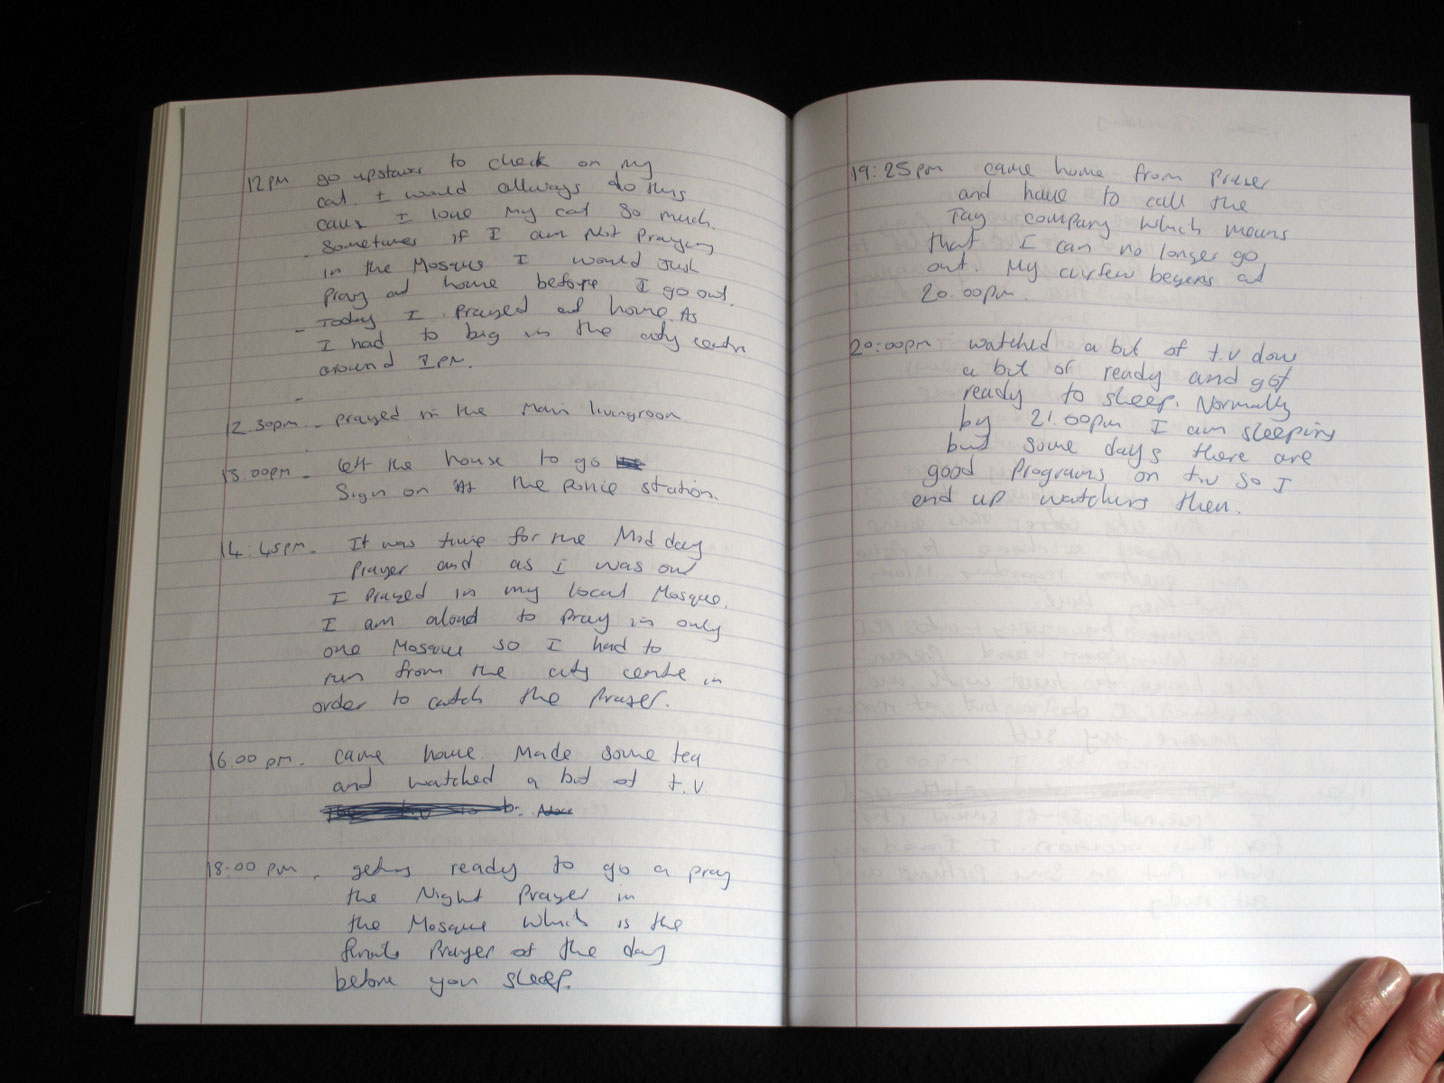 12pm go upstairs to check on my
cat. I would allways do this
caus I love my cat so much.
- Sometimes if I am Not Praying
in the Mosque I would Just
Pray at home before I go out.
- Today I Prayed at home. As
I had to big in the city centre
around 1pm.
-
12.30pm - prayed in the Main livingroom
13.00pm - left the house to go
Sign on At the Police station.
14:45pm. It was time for the Mid day
Prayer and as I was out
I Prayed in my local Mosque.
I am aloud to Pray in only
one Mosque so I had to
run from the city centre in
order to catch the Prayer.
16.00 pm. came home Made some tea
and watched a bit of t.v.
18:00 pm. geting ready to go a pray
the Night Prayer in
the Mosque Which is the
Prayer of the day
before you sleep.
19:25pm came home from Prayer
and have to call the
Tag company which means
that I can no longer go
out. My curfew begins at
20.00pm.
20:00pm watched a bit of t.v done
a bit of ready and got
ready to sleep. Normally
by 21.00pm I am sleeping
but some days there are
good Programs on t.v so I
end up watching them.